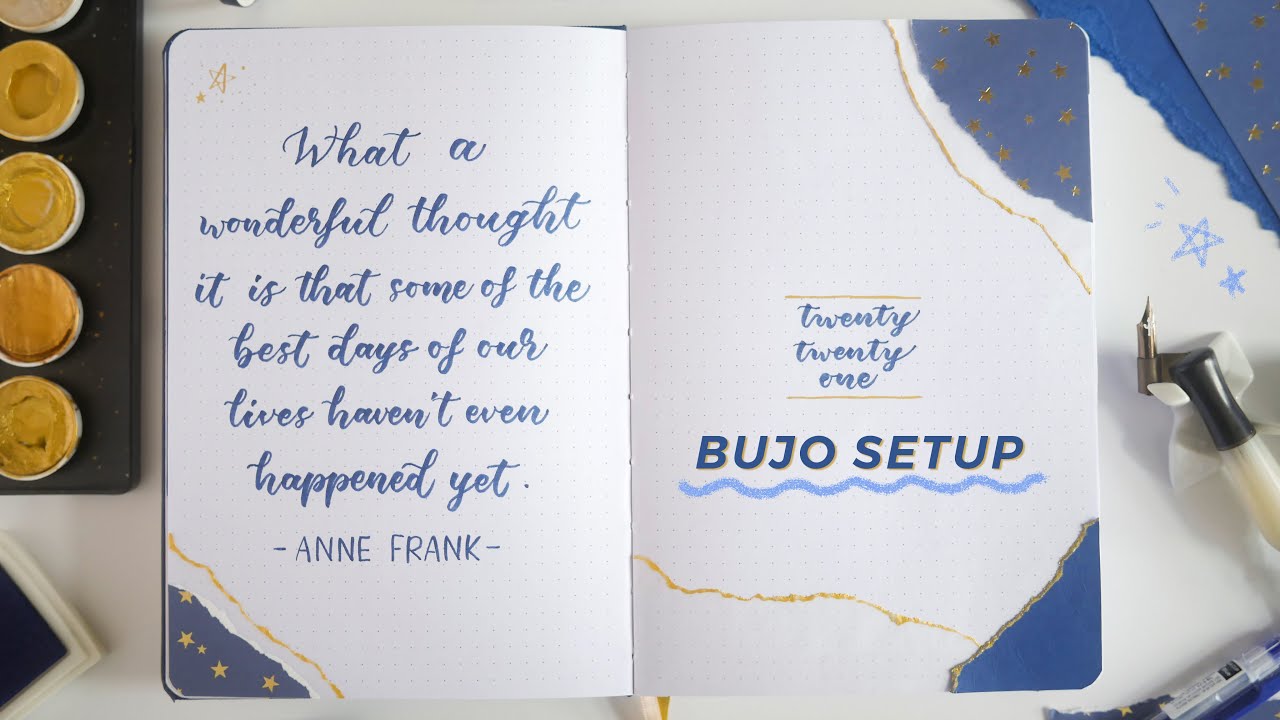 What a
wonderful thought
it is that some of the
best days of our
lives haven't even
happened yet.
-ANNE FRANK-
twenty
twenty
one
BUJO SETUP